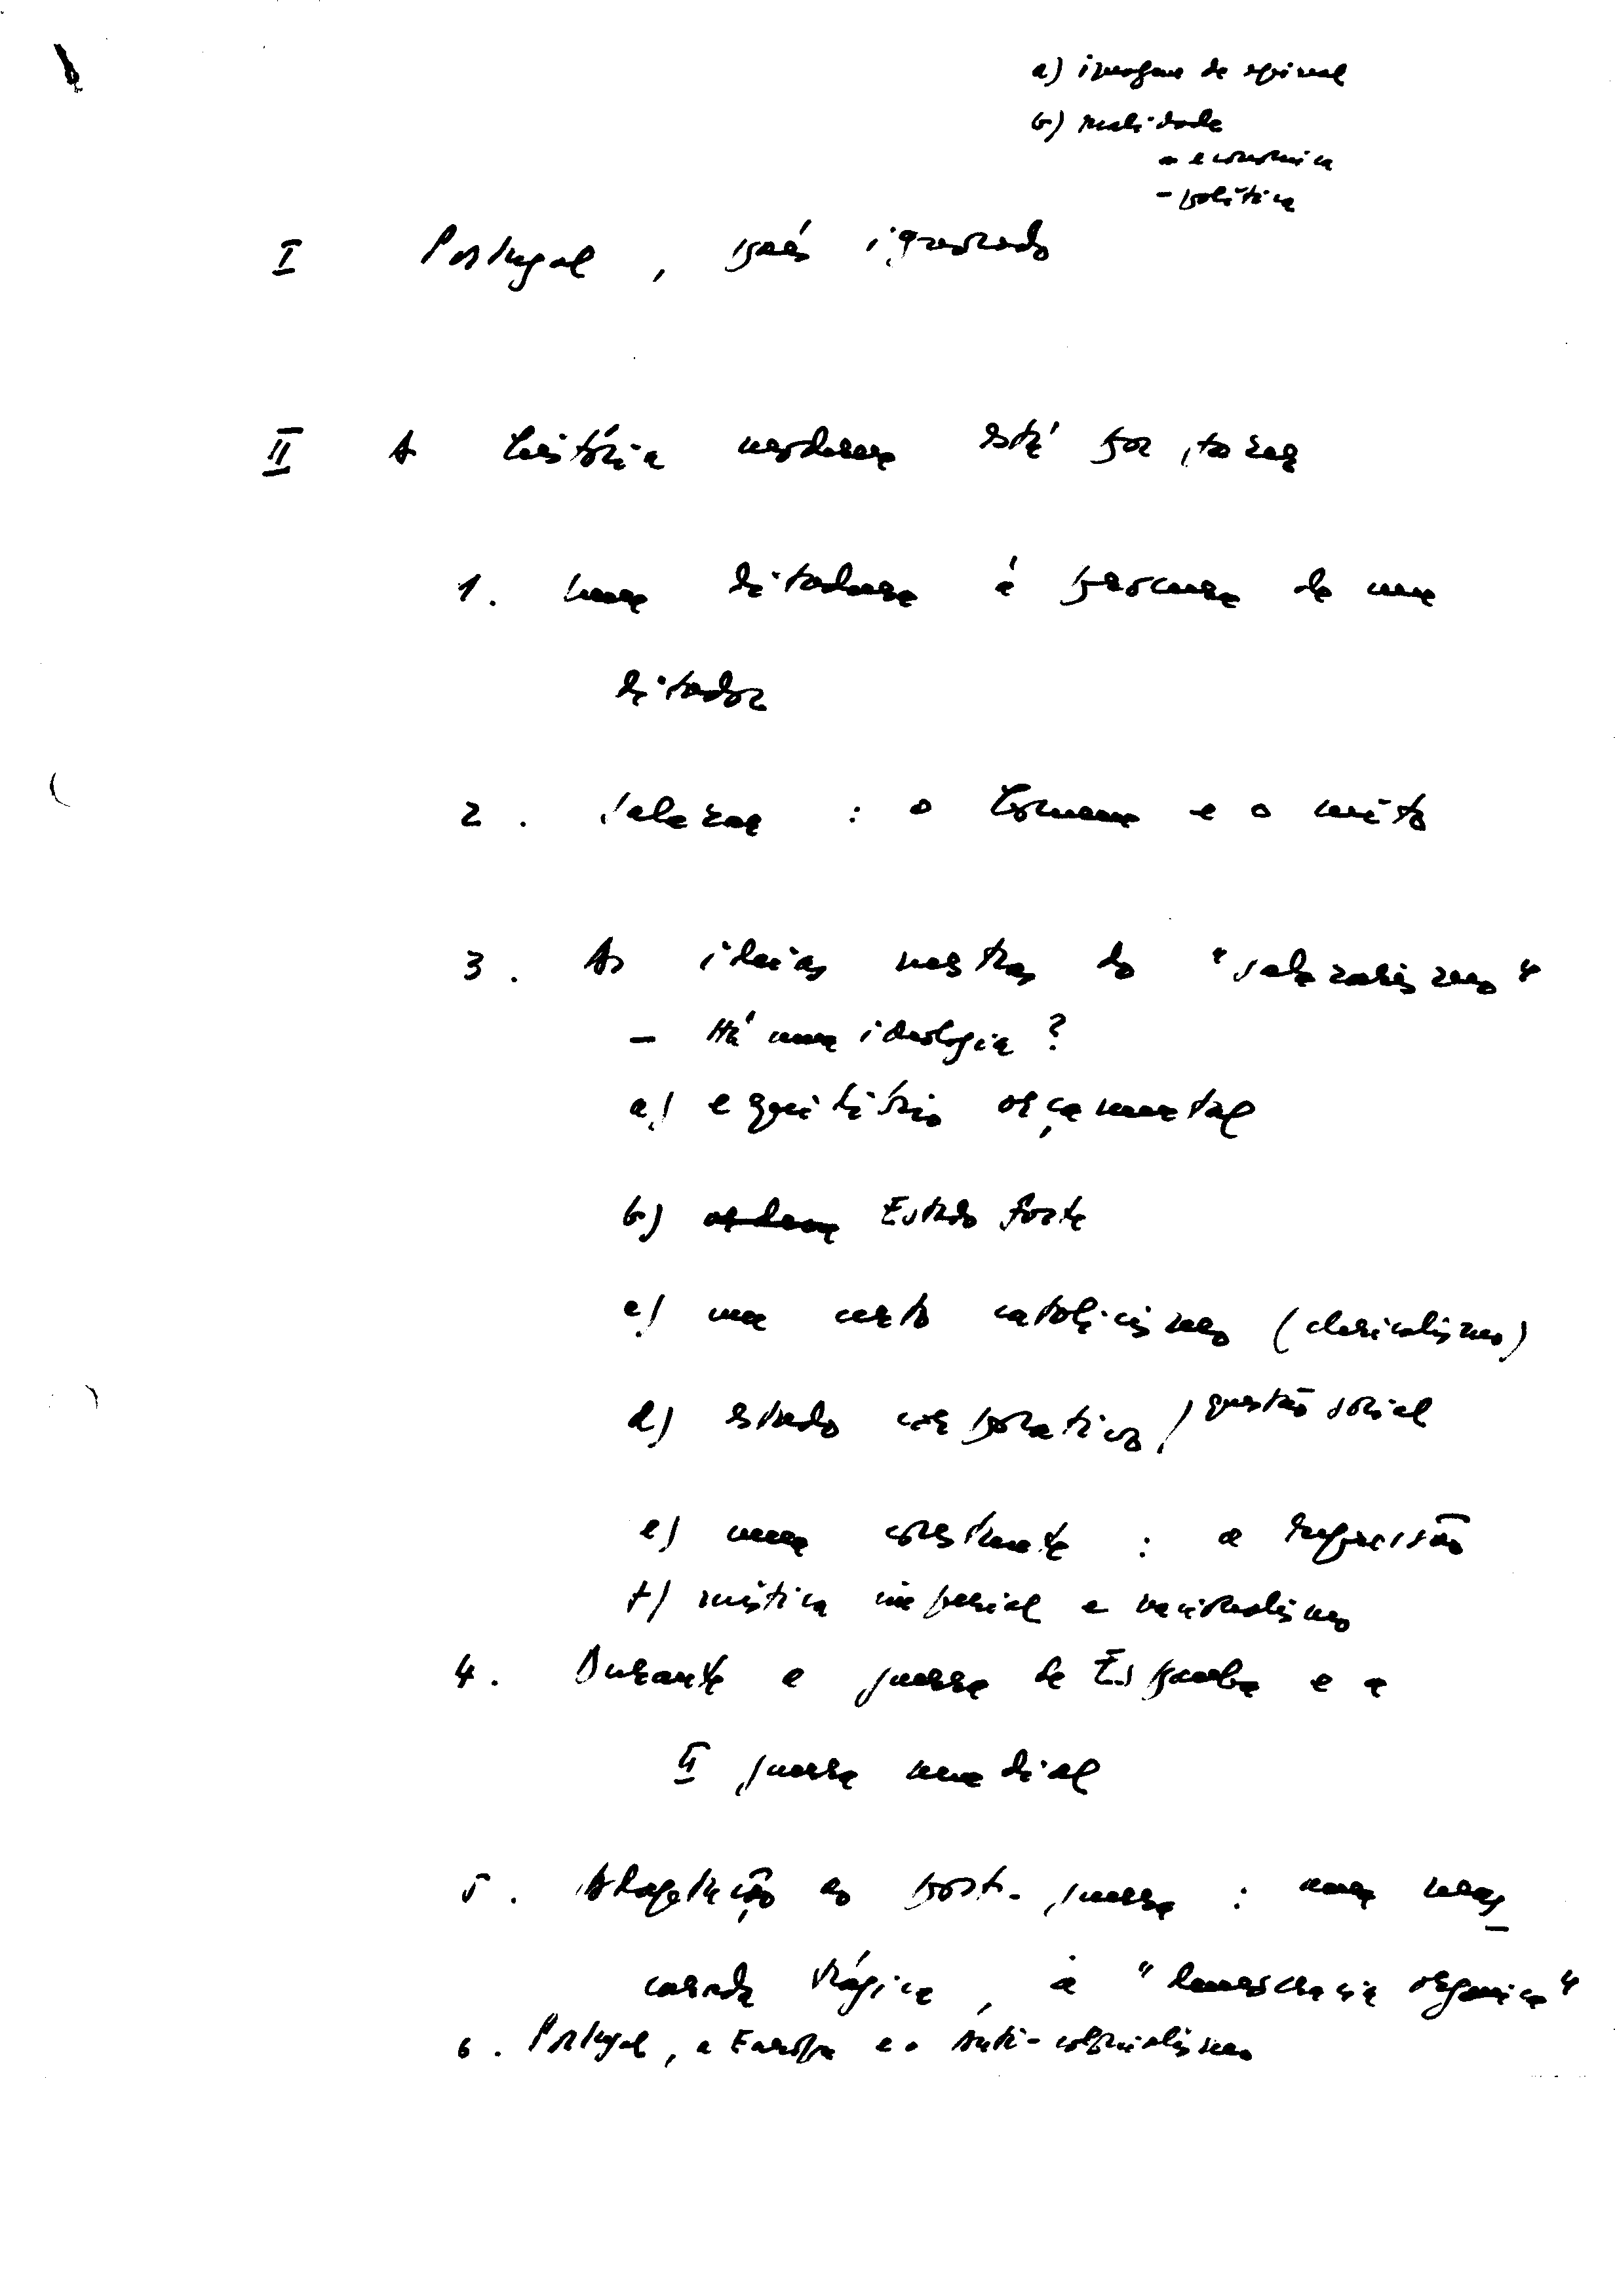 a) imagem de
b) realidade
- economica
- política
I Portugal, país ignorado
II A história moderna está por fazer
1. Uma ditadura à procura de um
ditador
2. Salazar : o homem e o mito
3. As ideias mestras do "salazarismo"
- Há uma ideologia ?
a) equilíbrio orçamental
b) ordem Estado forte
c) um certo catolicismo (clericalismo)
d) estado corporativo / questão social
e) uma constante : a repressão
f) mística imperial e nacionalismo
4. Durante a guerra de Espanha e a
II guerra mundial
5. Adaptação ao post-guerra : uma mas-
carada trágica, a "democracia orgânica"
6. Portugal, a Europa e o Anti-colonialismo